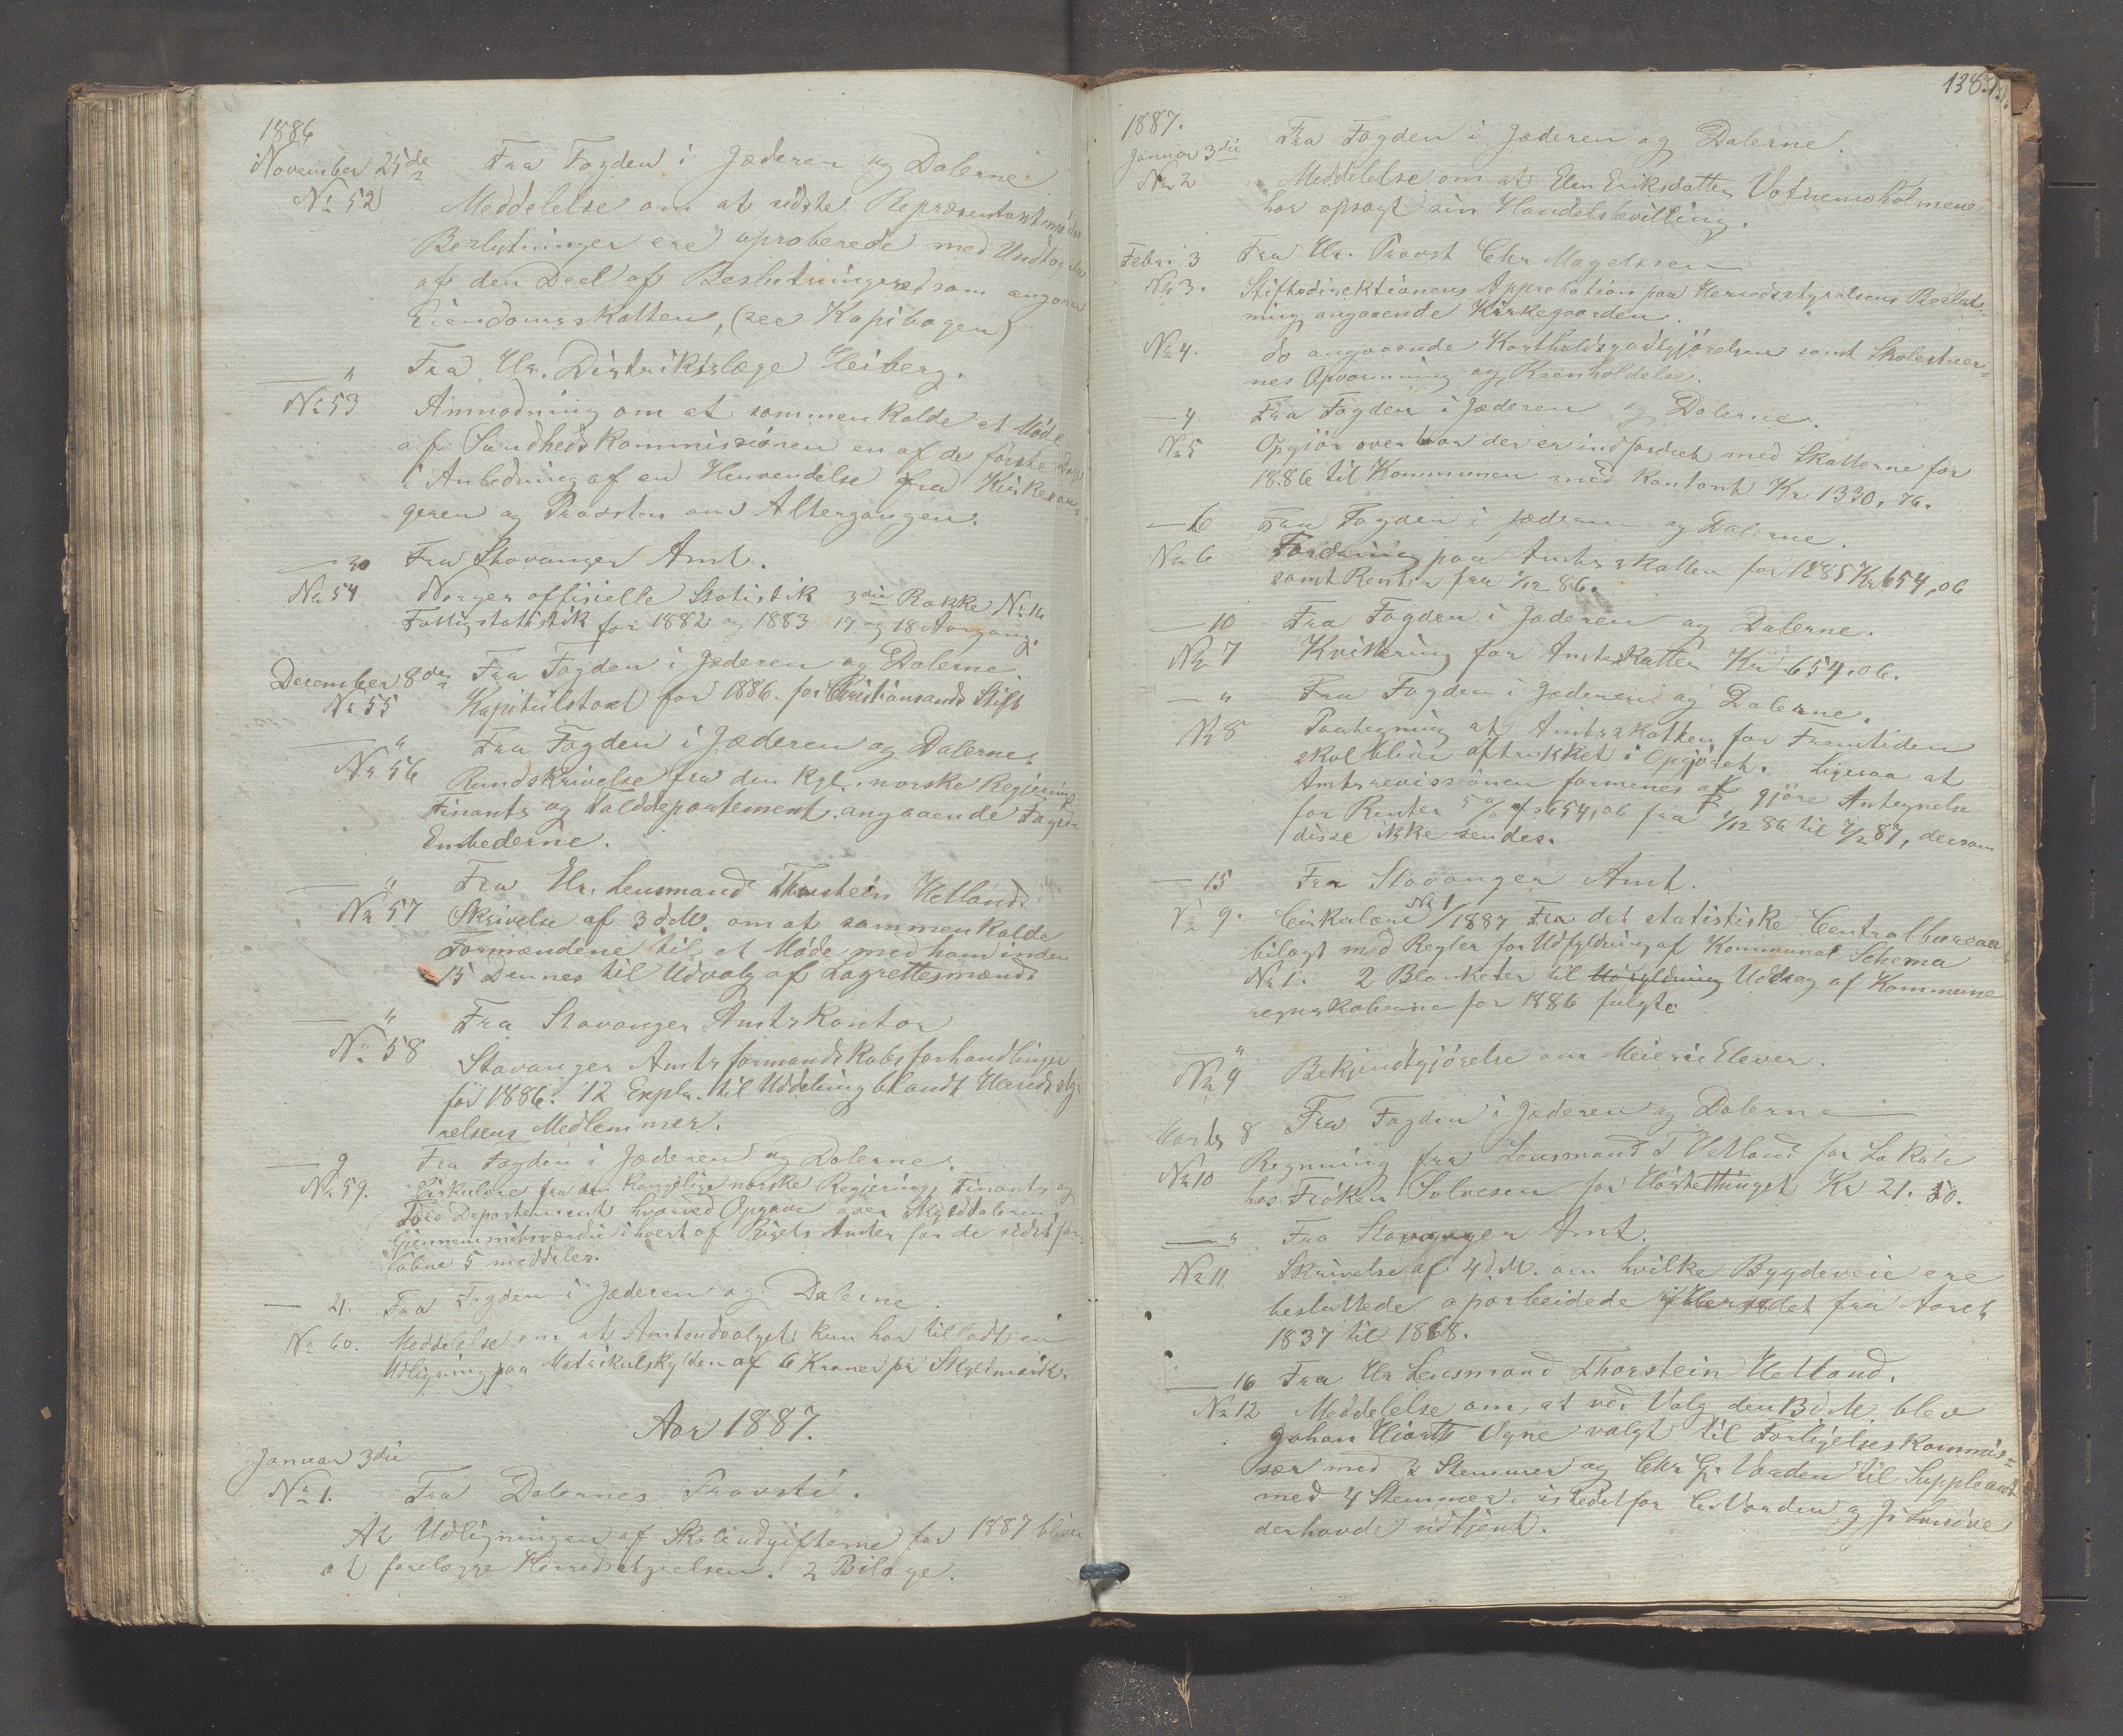 1886
November 25de Fra Fogden i Jæderen og Dalerne
No 52 Meddelelse om at sidste Repræsentantmødes
Beslutninger ere aproberede med Undtagelse
af den Deel af Beslutningen som angaar
Eiendomsskatten, (see Kopibogen)
— " Fra Hr. Distriktslæge Heiberg.
No 53 Anmodning om at sammenkalde et Møde
af Sundhedskommissionen en af de første Dage
i Anledning af en Henvendelse fra Kirkesan-
geren og Provsten om Altergangen.
— 30 Fra Stavanger Amt.
No 54 Norges offisielle Statistik 3die Række No 14
Fattigstatistik for 1882 og 1883 17 og 18 Aargang.
December 8de Fra Fogden i Jæderen og Dalerne
No 55 Kapitulstaxt for 1886. for Christiansands Stift
— " Fra Fogden i Jæderen og Dalerne.
No 56 Rundskrivelse fra den Kgl. norske Regjerings
Finants og Tolddepartement angaaende Foged-
Embederne.
— " Fra Hr. Lensmand Thorstein Hetland.
No 57 Skrivelse af 3 d.M. om at sammenkalde
Formændene til et Møde med ham inden
15 Dennes til Udvalg af Lagrettesmænd.
— " Fra Stavanger Amtskontor
No 58 Stavanger Amtsformandskabsforhandlinger
for 1886. 12 Expl. til Uddeling blandt Herredssty-
relsens Medlemmer.
— 9 Fra Fogden i Jæderen og Dalerne.
No 59. Cirkulære fra den Kongelige norske Regjerings Finants og
Told Departement hvorved Opgave over Skylddalerens
Gjennemsnitsværdie i hvert af Rigets Amter for de sidst for-
løbne 5 meddeles.
— 21. Fra Fogden i Jæderen og Dalerne.
No 60. Meddelelse om at Amtsudvalget kun har tilladt en
Udligning paa Matrikulskylden af 6 Kroner pr Skyldmark.
Aar 1887.
Januar 3die
No 1. Fra Dalernes Provsti.
At Udligningen af Skoleudgifterne for 1887 bliver
at forelægge Herredsstyrelsen. 2 Bilage.
138.
1887.
Januar 3die Fra Fogden i Jæderen og Dalerne.
No 2 Meddelelse om at Elen Eriksdatter Vatnemoholmene
har opsagt sin Handelsbevilling.
Febr. 3 Fra Hr. Provst Chr Magelssen
No 3. Stiftsdirektionens Approbation paa Herredsstyrelsens Beslut-
ning angaaende Kirkegaarden.
No 4. do angaaende Kostholdsgodtgjørelsen samt Skolestuer-
nes Opvarmning og Reenholdelse.
— 4 Fra Fogden i Jæderen og Dalerne.
No 5 Opgjør over hvor der er indfordret med Skatterne for
1886 til Kommunen med kontant Kr 1330,76.
— 6 Fra Fogden i Jæderen og Dalerne.
No 6 Fordring paa Amtsskatten for 1885 Kr 654,06
samt Renter fra 1/12 86.
— 10 Fra Fogden i Jæderen og Dalerne.
No 7 Kvittering for Amtsskatten Kr 654.06.
— " Fra Fogden i Jæderen og Dalerne.
No 8 Paategning at Amtsskatten for Fremtiden
skal blive aftrukket i Opgjøret. Ligesaa at
Amtsrevissionen formenes at gjøre Antegnelse
for Renter 5 % af 654,06 fra 1/12 86 til 7/2 87, dersom
disse ikke sendes.
— 15 Fra Stavanger Amt.
No 9. Cirkulære No 1/1887 Fra det statistiske Centralbureau
bilagt med Regler for Udfyldning af Kommunal Schema
No 1. 2 Blanketer til Udfyldning Uddrag af Kommune
regnskaberne for 1886 fulgte
— "
No 9 Bekjendtgjørelse om Meierie Elever.
Marts 8 Fra Fogden i Jæderen og Dalerne
No 10 Regnning fra Lensmand T Hetland for Lokale
hos Frøken Salvesen for Høstettinget Kr 21. 50.
— " Fra Stavanger Amt.
No 11 Skrivelse af 4 d.M. om hvilke Bygdeveie ere
besluttede oparbeidede i Herredet fra Aaret
1837 til 1868.
— 16 Fra Hr Lensmand Thorstein Hetland.
No 12 Meddelelse om, at ved Valg den 13 d M. blev
Johan Hiorth Ogne valgt til Forligelseskommis-
sær med 3 Stemmer og Chr G. Varden til Suppleant
med 4 Stemmer. istedetfor C. Varden og J.
der havde udtjent.